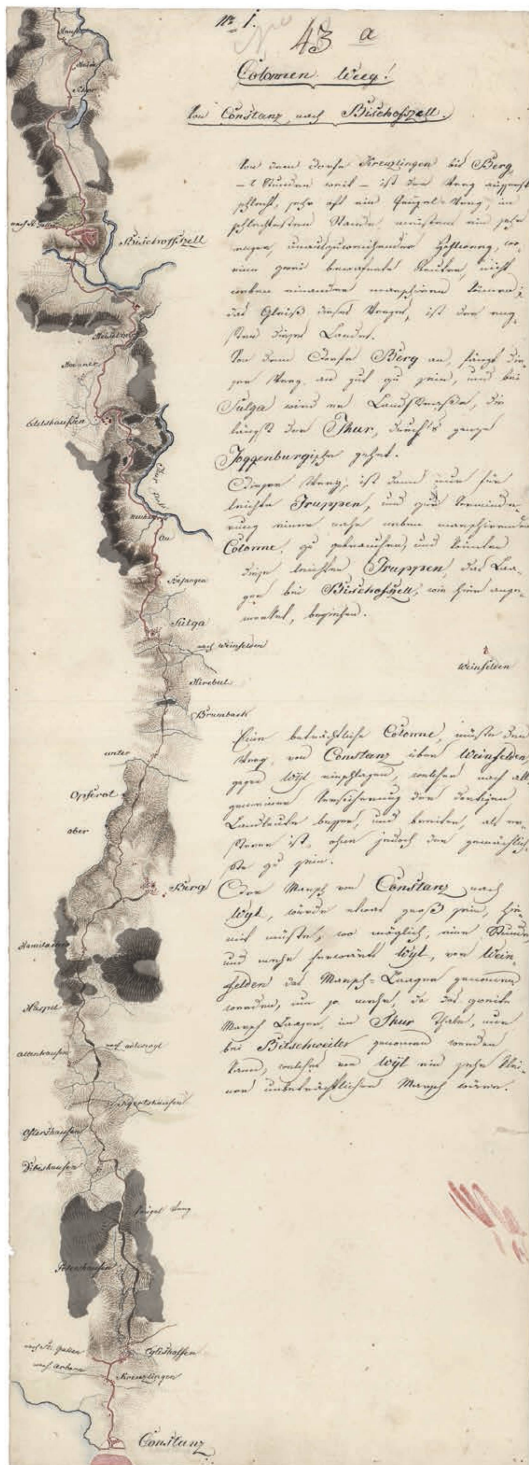 № 1.
43 a
Colonnen Weeg!
Von Constanz, nach Bischofszell.
Von dem Dorfe Kreuzlingen bis Berg,
– 2 Stunden weit – ist der Weeg äusserst
schlecht, sehr oft ein Prügel-Weeg, im
schlechtesten Stande, meistens ein sehr
enger, unauszuweichender Hohlweeg, wo
einn zwei bewafnete Reuter, nicht
neben einander marschiren können;
das Gleiß dieses Weeges, ist das eng-
ste dieses Landes.
Von dem Dorfe Berg an, fängt die-
ser Weeg an gut zu sein, und bei
Sulga wird er Landstrasse, die
längst der Thur, durchs ganze
Toggenburgische gehet.
Dieser Weeg, ist dem nur für
leichte Truppen, und zur Verminde-
rung einer nahe neben marschirenden
Colonne, zu gebrauchen, und könnten
diese leichten Truppen, das Laa-
ger bei Bischofszell, wie hier ange-
merket, beziehen.
Weinfelden
Eine beträchtliche Colonne, müste den
Weeg, von Constanz über Weinfelden,
gegen Wyl einschlagen, welcher nach all-
gemeiner Versicherung der dortigen
Landleute besser, und breiter, als er-
sterer ist, ohne jedoch der gemächlich-
ste zu sein.
Der Marsch von Constanz nach
Wyl, würde etwas groß sein, hie-
mit müste, wo möglich, eine Stunde
und mehr herwärts Wyl, von Wein-
felden das Marsch-Laager genommen
werden, um so mehr, da das zweite
Marsch Laager, im Thur Thale, nur
bei Bitschweiler genommen werden
kann, welches von Wyl ein sehr klei-
ner unbeträchtlicher Marsch wäre.
Bischoffszell
Heidelberg
Thur Fluß
Au
Sulga
nach Weinfelden
Mirebul
Brumbach
unter
Opferot
ober
Berg
Haspel
Altenhausen
Sigertshausen
Oftershausen
Dibishausen
Prügel Weeg
nach St. Gallen
nach Arbon
Kreuzlingen
Constanz